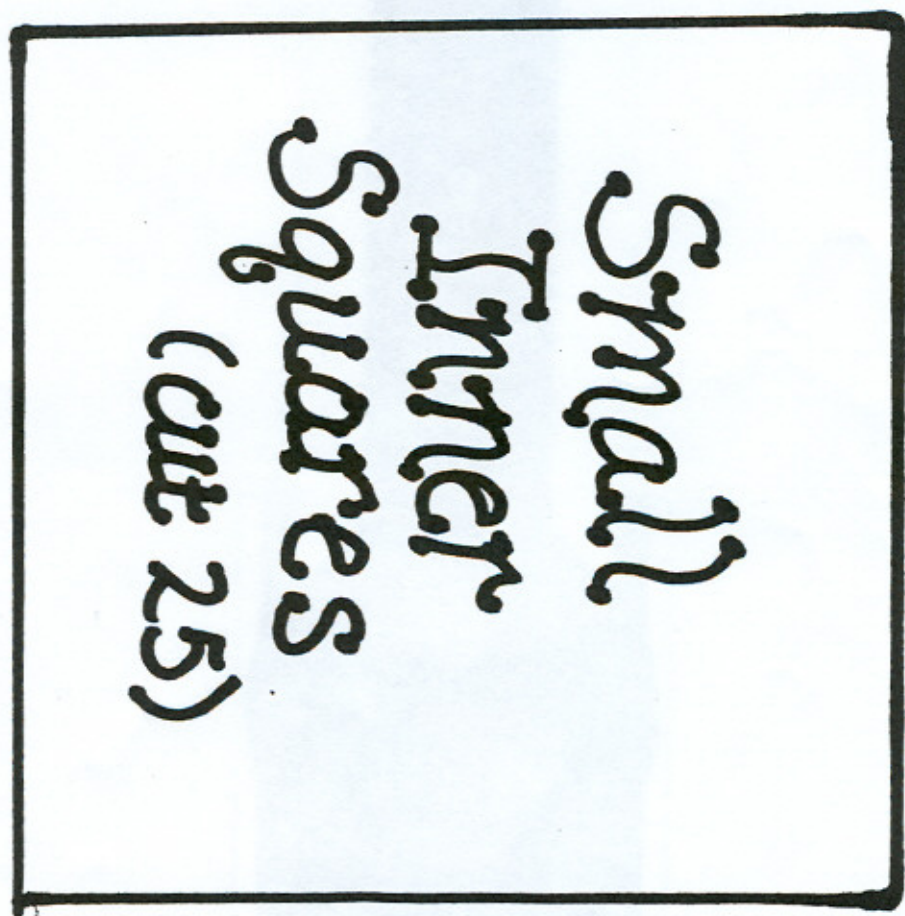 Small
Inner
Squares
(cut 25)